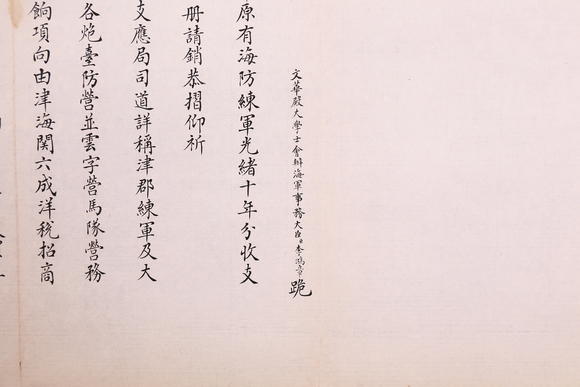 文華殿大學士會辦海軍事務大臣臣李鴻章跪
原有海防練軍光緒十年分收支
册請銷恭摺仰祈
支應局司道詳稱津郡練軍及大
各炮臺防營並雲字營馬隊營務
餉項向由津海関六成洋稅招商